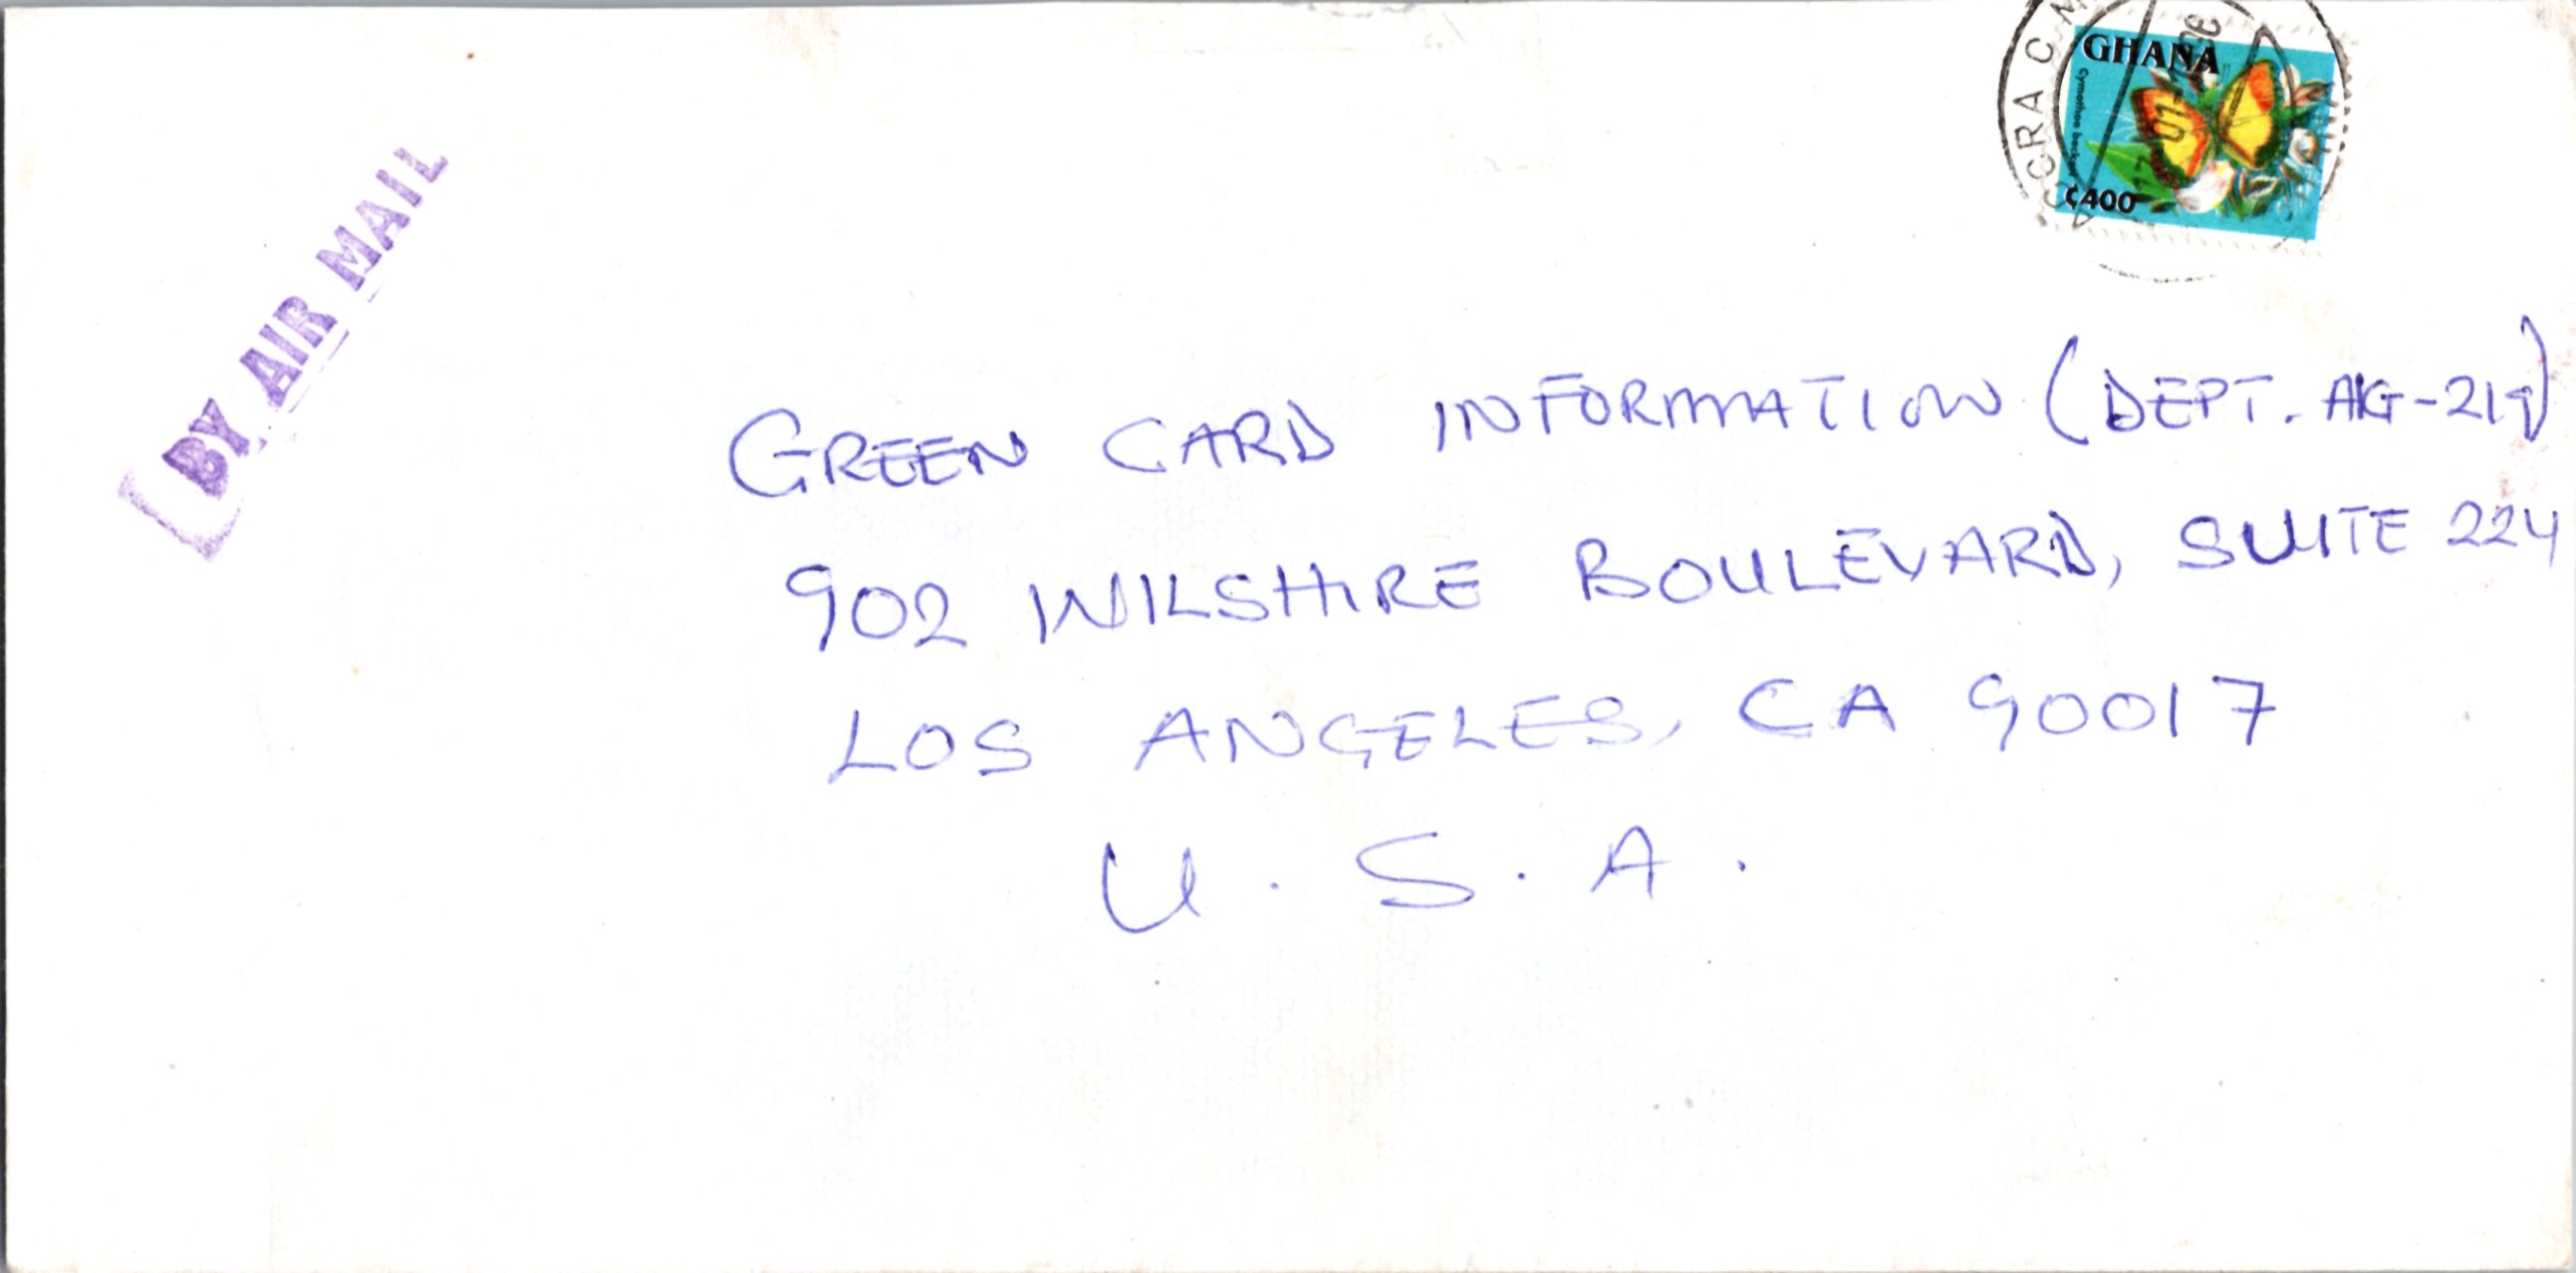 BY AIR MAIL
ACCRA C M
GHANA
Cymothoe
¢400
GREEN CARD INFORMATION (DEPT. AKG-219)
902 WILSHIRE BOULEVARD, SUITE 224
LOS ANGELES, CA 90017
U.S.A.